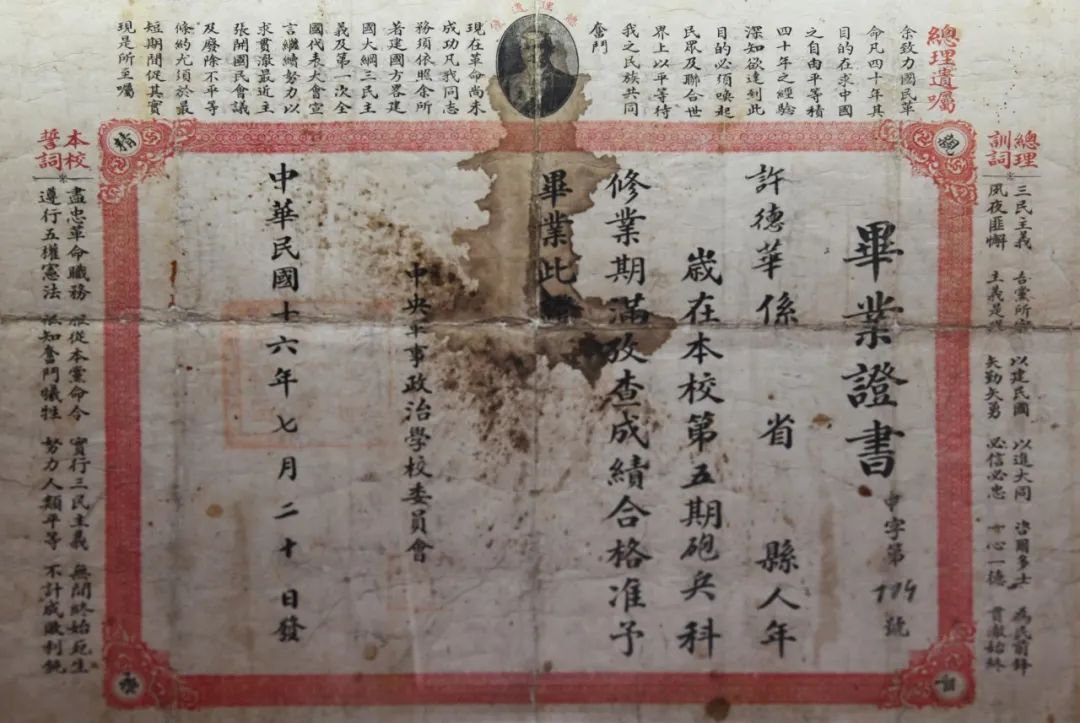 總理遺囑
余致力國民革
命凡四十年其
目的在求中國
之自由平等積
四十年之經驗
深知欲達到此
目的必須喚起
民眾及聯合世
界上以平等待
我之民族共同
奮鬥
總理遺像
現在革命尚未
成功凡我同志
務須依照余所
著建國方畧建
國大綱三民主
義及第一次全
國代表大會宣
言繼續努力以
求貫澈最近主
張開國民會議
及廢除不平等
條約尤須於最
短期間促其實
現是所至囑
總理
訓詞
三民主義 吾黨所宗 以建民國 以進大同 咨爾多士 為民前鋒
夙夜匪懈 主義是從 矢勤矢勇 必信必忠 一心一德 貫澈始終
畢業證書
字第 號
許德華係 省 縣人年
歲在本校第五期砲兵科
修業期滿攷查成績合格准予
畢業此證
中央軍事政治學校委員會
中華民國十六年七月二十日發
精
本校
誓詞
盡忠革命職務 服從本黨命令 實行三民主義 無間終始死生
遵行五權憲法 祇知奮鬥犧牲 努力人類平等 不計成敗利鈍